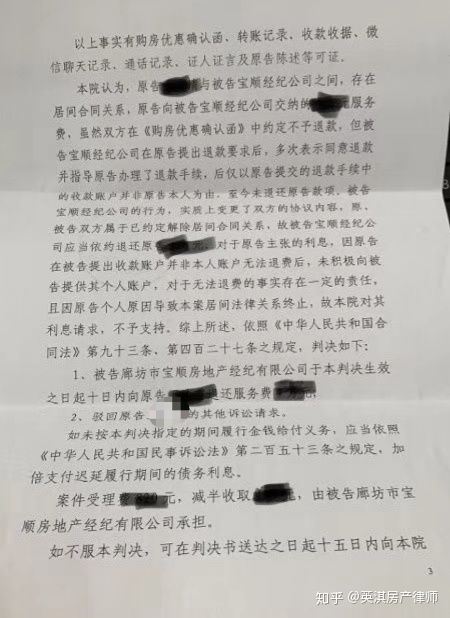 以上事实有购房优惠确认函、转账记录、收款收据、微
信聊天记录、通话记录、证人证言及原告陈述等可证。
本院认为，原告与被告宝顺经纪公司之间，存在
居间合同关系，原告向被告宝顺经纪公司交纳的元服务
费，虽然双方在《购房优惠确认函》中约定不予退款，但被
告宝顺经纪公司在原告提出退款要求后，多次表示同意退款
并指导原告办理了退款手续，后仅以原告提交的退款手续中
的收款账户并非原告本人为由，至今未退还原告款项，被告
宝顺经纪公司的行为，实质上变更了双方的协议内容，原、
被告双方属于已约定解除居间合同关系，故被告宝顺经纪公
司应当依约退还原告元，对于原告主张的利息，因原告
在被告提出收款账户并非本人账户无法退费后，未积极向被
告提供其个人账户，对于无法退费的事实存在一定的责任，
且因原告个人原因导致本案居间法律关系终止，故本院对其
利息请求，不予支持。综上所述，依照《中华人民共和国合
同法》第九十三条、第四百二十七条之规定，判决如下：
1、被告廊坊市宝顺房地产经纪有限公司于本判决生效
之日起十日内向原告退还服务费元；
2、驳回原告的其他诉讼请求。
如未按本判决指定的期间履行金钱给付义务，应当依照
《中华人民共和国民事诉讼法》第二百五十三条之规定，加
倍支付迟延履行期间的债务利息。
案件受理费元，减半收取元，由被告廊坊市宝
顺房地产经纪有限公司承担。
如不服本判决，可在判决书送达之日起十五日内向本院
3
知乎 @英淇房产律师